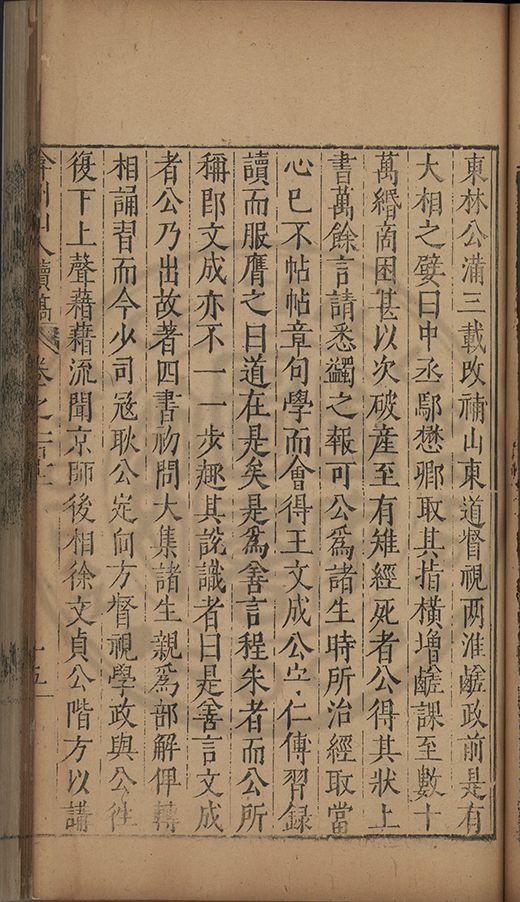 東林公滿三載改補山東道督視两淮鹺政前是有
大相之嬖曰中丞鄢懋卿取其指橫增鹺課至數十
萬緡商困甚以次破產至有雉經死者公得其狀上
書萬餘言請悉蠲之報可公爲諸生時所治經取當
心已不帖帖章句學而會得王文成公守仁傳習錄
讀而服膺之曰道在是矣是爲善言程朱者而公所
稱即文成亦不一一步趨其說識者曰是善言文成
者公乃出故著四書初問大集諸生親爲部解俾轉
相誦習而今少司寇耿公定向方督視學政與公往
復下上聲藉藉流聞京師後相徐文貞公階方以講
弇州山人續稿 卷之一百 十五